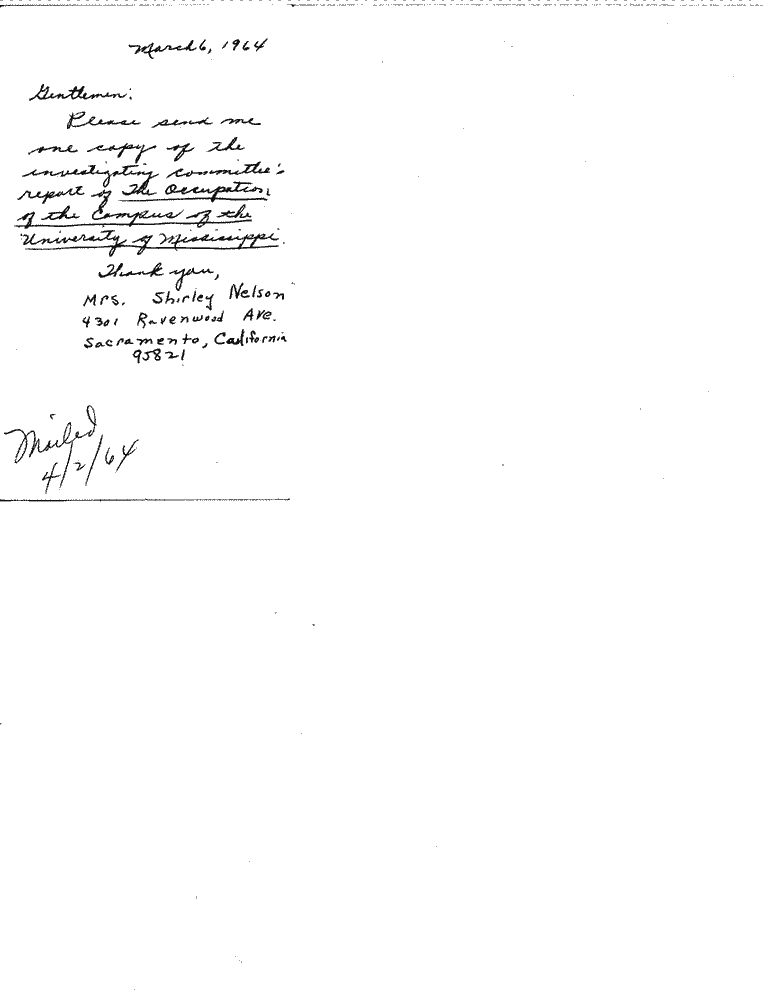 March 6, 1964
Gentlemen:
Please send me
one copy of the
investigating committee's
report of The Occupation
of the Campus of the
University of Mississippi.
Thank you,
Mrs. Shirley Nelson
4301 Ravenwood Ave.
Sacramento, California
95821
Mailed
4/2/64